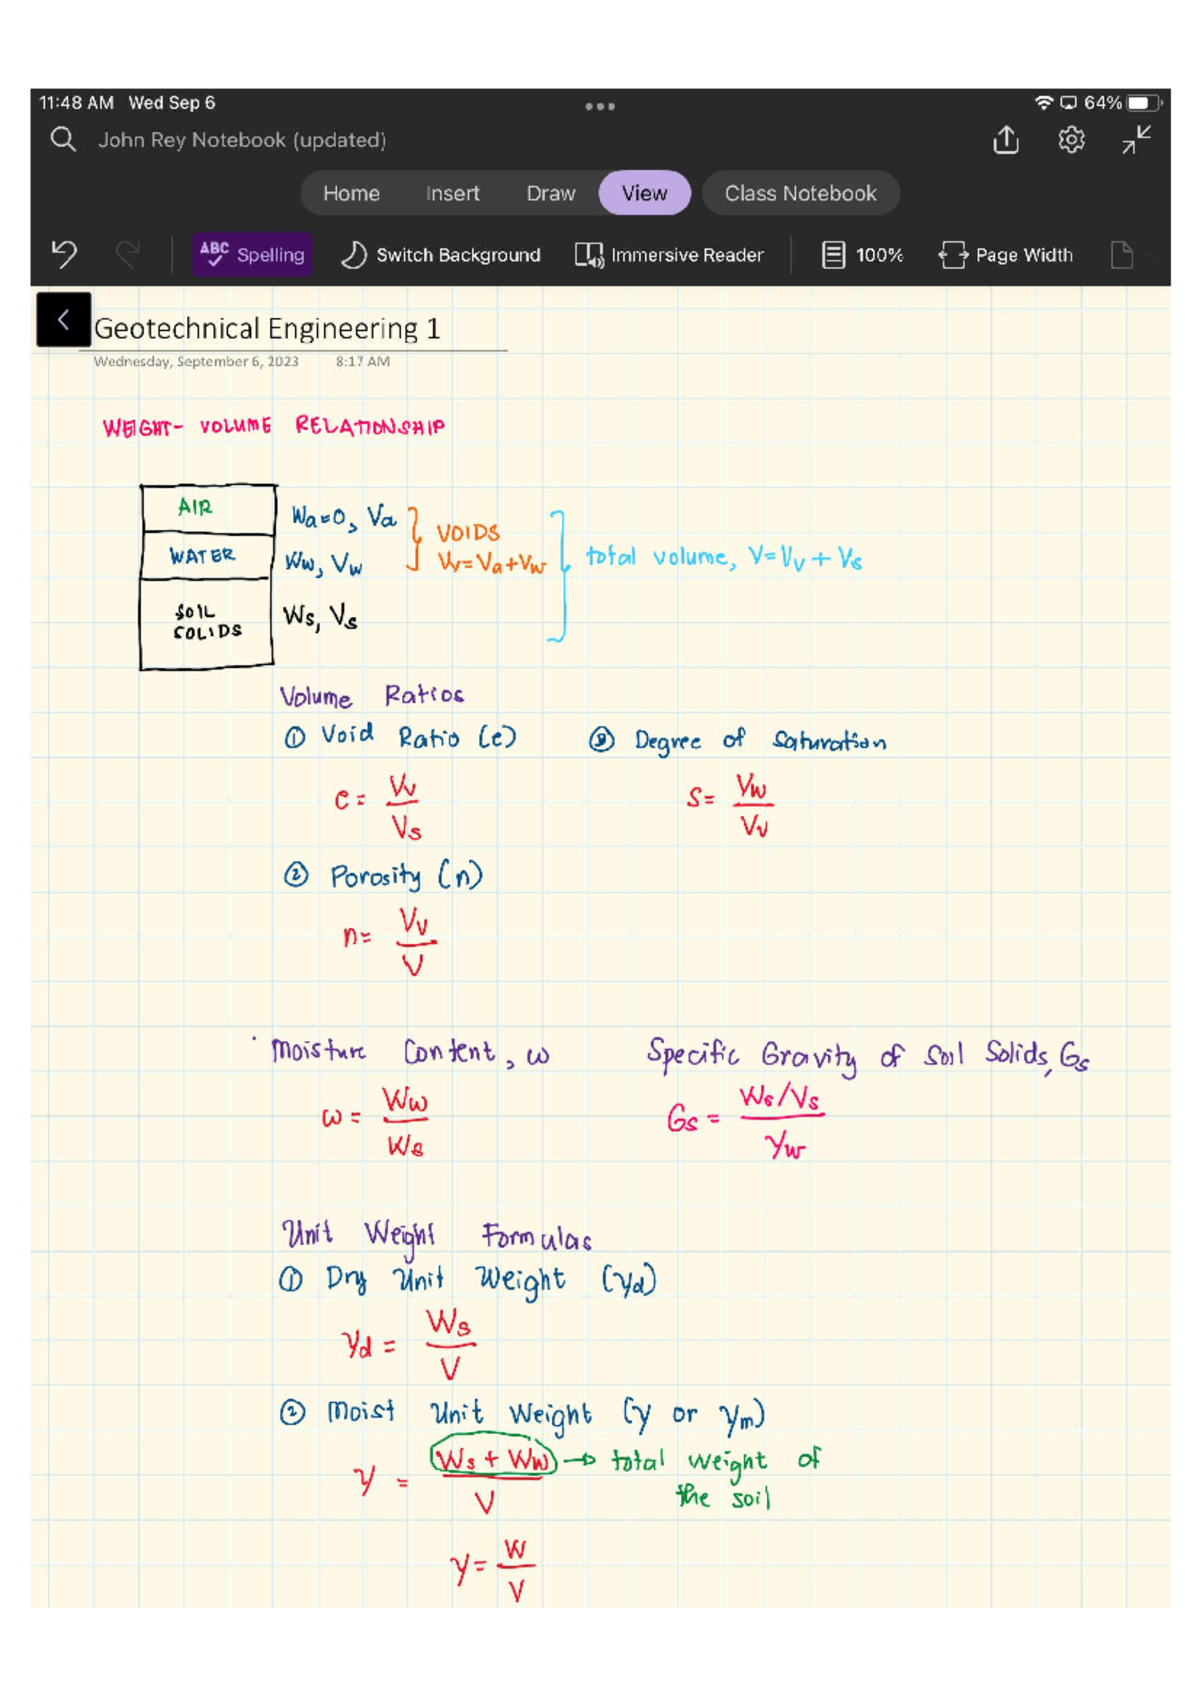 11:48 AM Wed Sep 6
64%
John Rey Notebook (updated)
Home Insert Draw View Class Notebook
ABC Spelling Switch Background Immersive Reader 100% Page Width
Geotechnical Engineering 1
Wednesday, September 6, 2023 8:17 AM
WEIGHT- VOLUME RELATIONSHIP
AIR
Wa=0, Va
VOIDS
WATER
Ww, Vw
Vv=Va+Vw
total volume, V=Vv+Vs
SOIL
SOLIDS
Ws, Vs
Volume Ratios
① Void Ratio (e)
③ Degree of Saturation
e = Vv/Vs
S= Vw/Vv
② Porosity (n)
n= Vv/V
Moisture Content, ω
Specific Gravity of Soil Solids, Gs
ω = Ww/Ws
Gs = Ws/Vs / γw
Unit Weight Formulas
① Dry Unit Weight (γd)
γd = Ws/V
② Moist Unit Weight (γ or γm)
γ = Ws + Ww / V → total weight of
the soil
γ = W/V